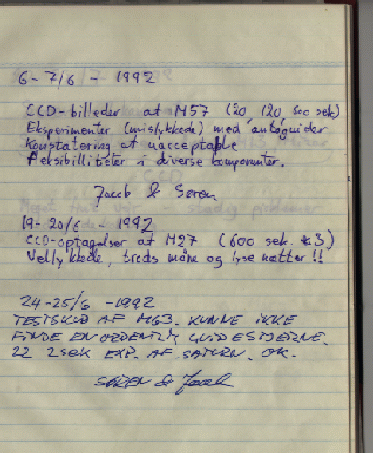 6-7/6 - 1992
CCD-billeder af M57 (20, 120, 600 sek)
Eksperimenter (mislykkede) med autoguider
Konstatering af uacceptable
fleksibilliteter i diverse komponenter.
Jacob & Søren
19-20/6 - 1992
CCD-optagelser af M27 (600 sek. * 3)
Vellykkede, trods måne og lyse nætter !!
24-25/6 -1992
TESTSKUD AF M63. KUNNE IKKE
FINDE EN ORDENTLIG GUIDESTJERNE.
22 2 SEK EXP. AF SATURN. OK.
SØREN & Jacob